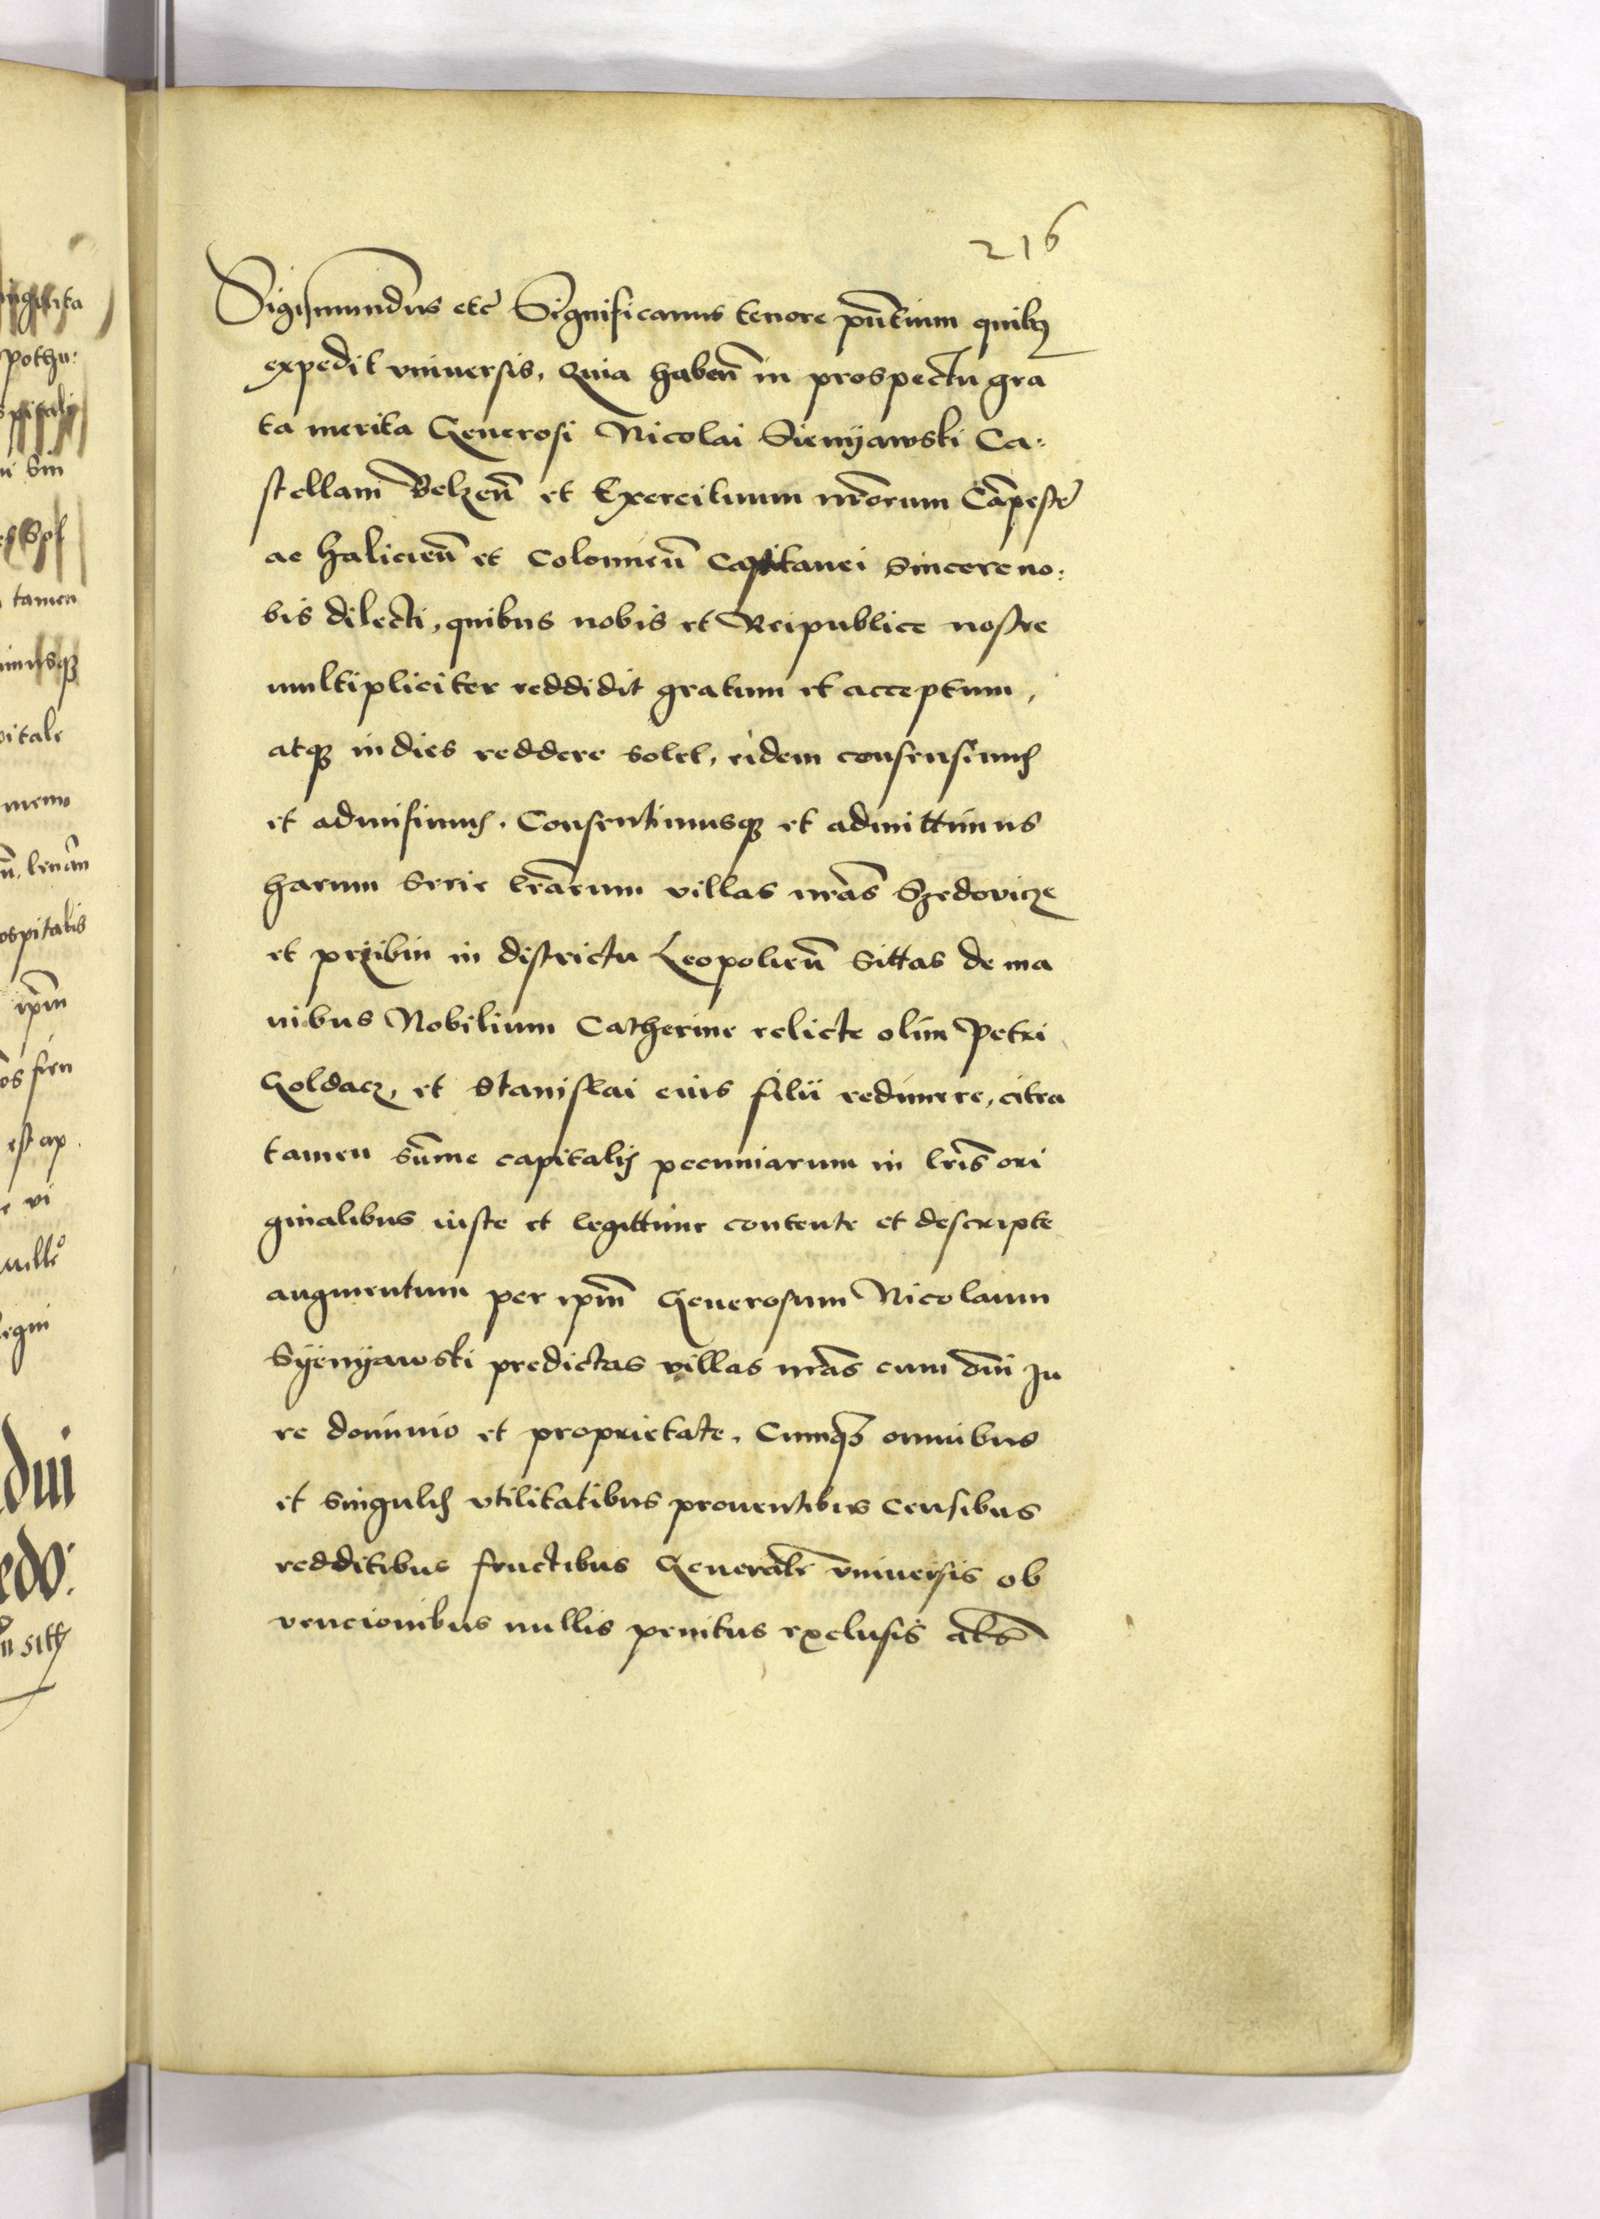 216
Sigismundus etc Significamus tenore pntium quibus
expedit vniuersis, Quia haben in prospectu gra
ta merita Generosi Nicolai Sienyawski Ca:
stellani Belzen et Exercituum nrorum Campestr
ac Halicien et Colomien Capitanei Sincere no:
bis dilecti, quibus nobis et Reipublice nostre
multipliciter reddidit gratum et acceptum,
atq indies reddere solet, eidem consensimus
et admisimus. Consentimusq et admittimus
harum serie lrarum villas nras Szedovicze
et przibin in districtu Leopolien Sittas de ma
nibus Nobilium Catherine relicte olim Petri
Goldacz, et Stanislai eius filii redimere, citra
tamen summe capitalis pecuniarum in lris ori
ginalibus iuste et legittime contente et descripte
augmentum per ipm Generosum Nicolaum
Syenyawski predictas villas nras cum omi Ju
re dominio et proprietate. Cumq omnibus
et singulis vtilitatibus prouentibus censibus
redditibus fructibus Generalr vniuersis ob
vencionibus nullis penitus exclusis